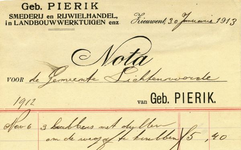 Geb. PIERIK
SMEDERIJ EN RIJWIELHANDEL,
in LANDBOUWWERKTUIGEN enz
Zieuwent, 30 Januarie 1913
Nota
VOOR de Gemeente Lichtenvoorde
van Geb. PIERIK.
1912
Nov 6 3 met
en de f 5,40